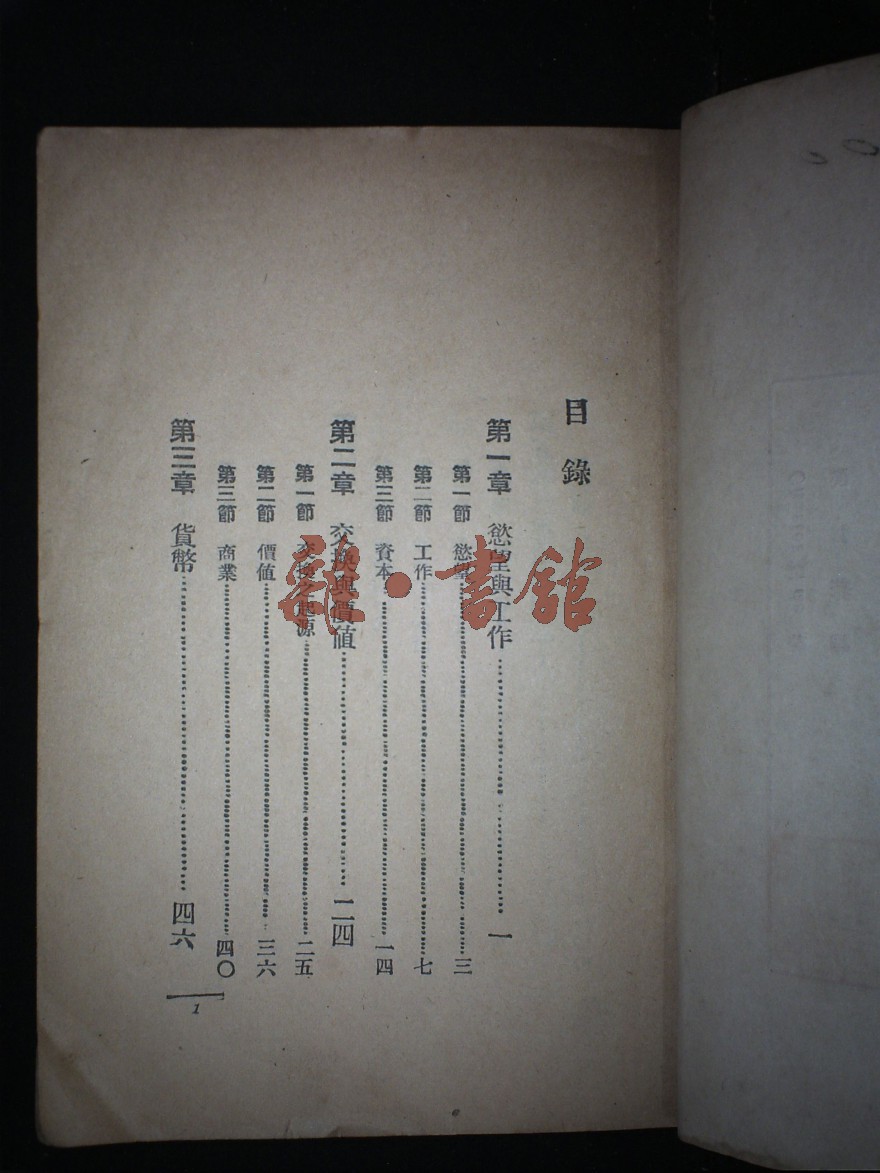 目錄
第一章 慾望與工作……一
第一節 慾望……三
第二節 工作……七
第三節 資本……一四
第二章 交換與價值……二四
第一節 交換之起源……二五
第二節 價値……三六
第三節 商業……四〇
第三章 貨幣……四六
1
書館